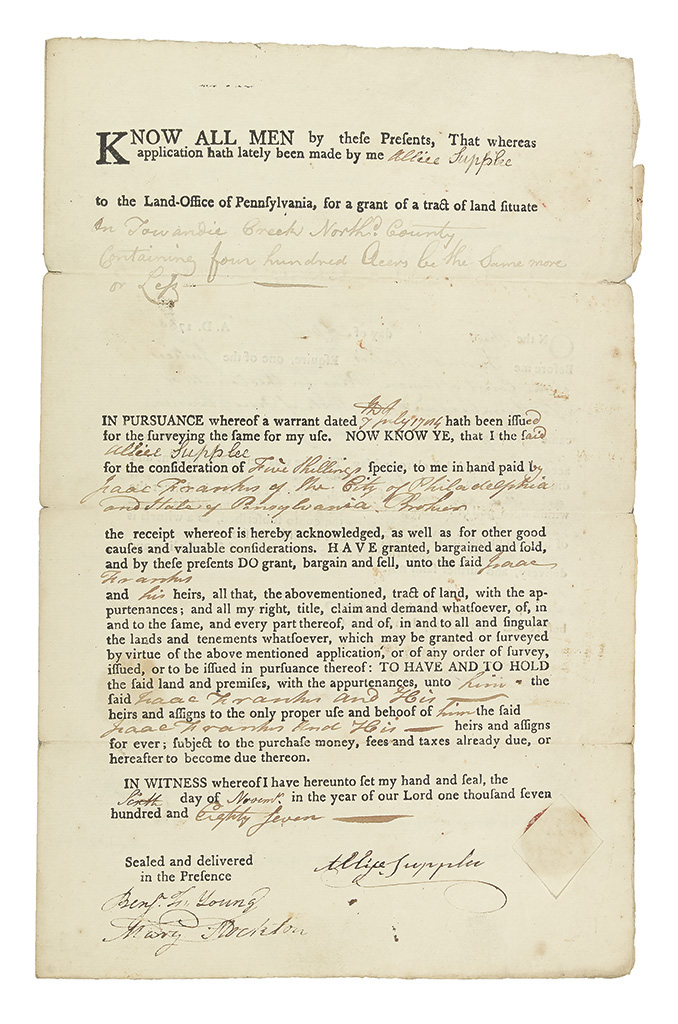 KNOW ALL MEN by theſe Preſents, That whereas
application hath lately been made by me Alliee Supplee
to the Land-Office of Pennſylvania, for a grant of a tract of land ſituate
In Towandie Creek North.d County
Containing four hundred Acers be the Same more
or Leſs
IN PURSUANCE whereof a warrant dated July hath been iſſued
for the ſurveying the ſame for my uſe. NOW KNOW YE, that I the ſaid
Alliee Supplee
for the conſideration of Five Shillings ſpecie, to me in hand paid by
Isaac Franks of the City of Philadelphia
and State of Pensylvania Broker
the receipt whereof is hereby acknowledged, as well as for other good
cauſes and valuable conſiderations. HAVE granted, bargained and ſold,
and by theſe preſents DO grant, bargain and ſell, unto the ſaid Isaac
Franks
and his heirs, all that, the abovementioned, tract of land, with the ap-
purtenances; and all my right, title, claim and demand whatſoever, of, in
and to the ſame, and every part thereof, and of, in and to all and ſingular
the lands and tenements whatſoever, which may be granted or ſurveyed
by virtue of the above mentioned application, or of any order of ſurvey,
iſſued, or to be iſſued in purſuance thereof: TO HAVE AND TO HOLD
the ſaid land and premiſes, with the appurtenances, unto him the
ſaid Isaac Franks and His
heirs and aſſigns to the only proper uſe and behoof of him the ſaid
Isaac Franks and His heirs and aſſigns
for ever; ſubject to the purchaſe money, fees and taxes already due, or
hereafter to become due thereon.
IN WITNESS whereof I have hereunto ſet my hand and ſeal, the
Sixth day of Novemr. in the year of our Lord one thouſand ſeven
hundred and Eighty Seven
Sealed and delivered
in the Preſence
Allice Supplee
Benj. Young
Mary Stockton